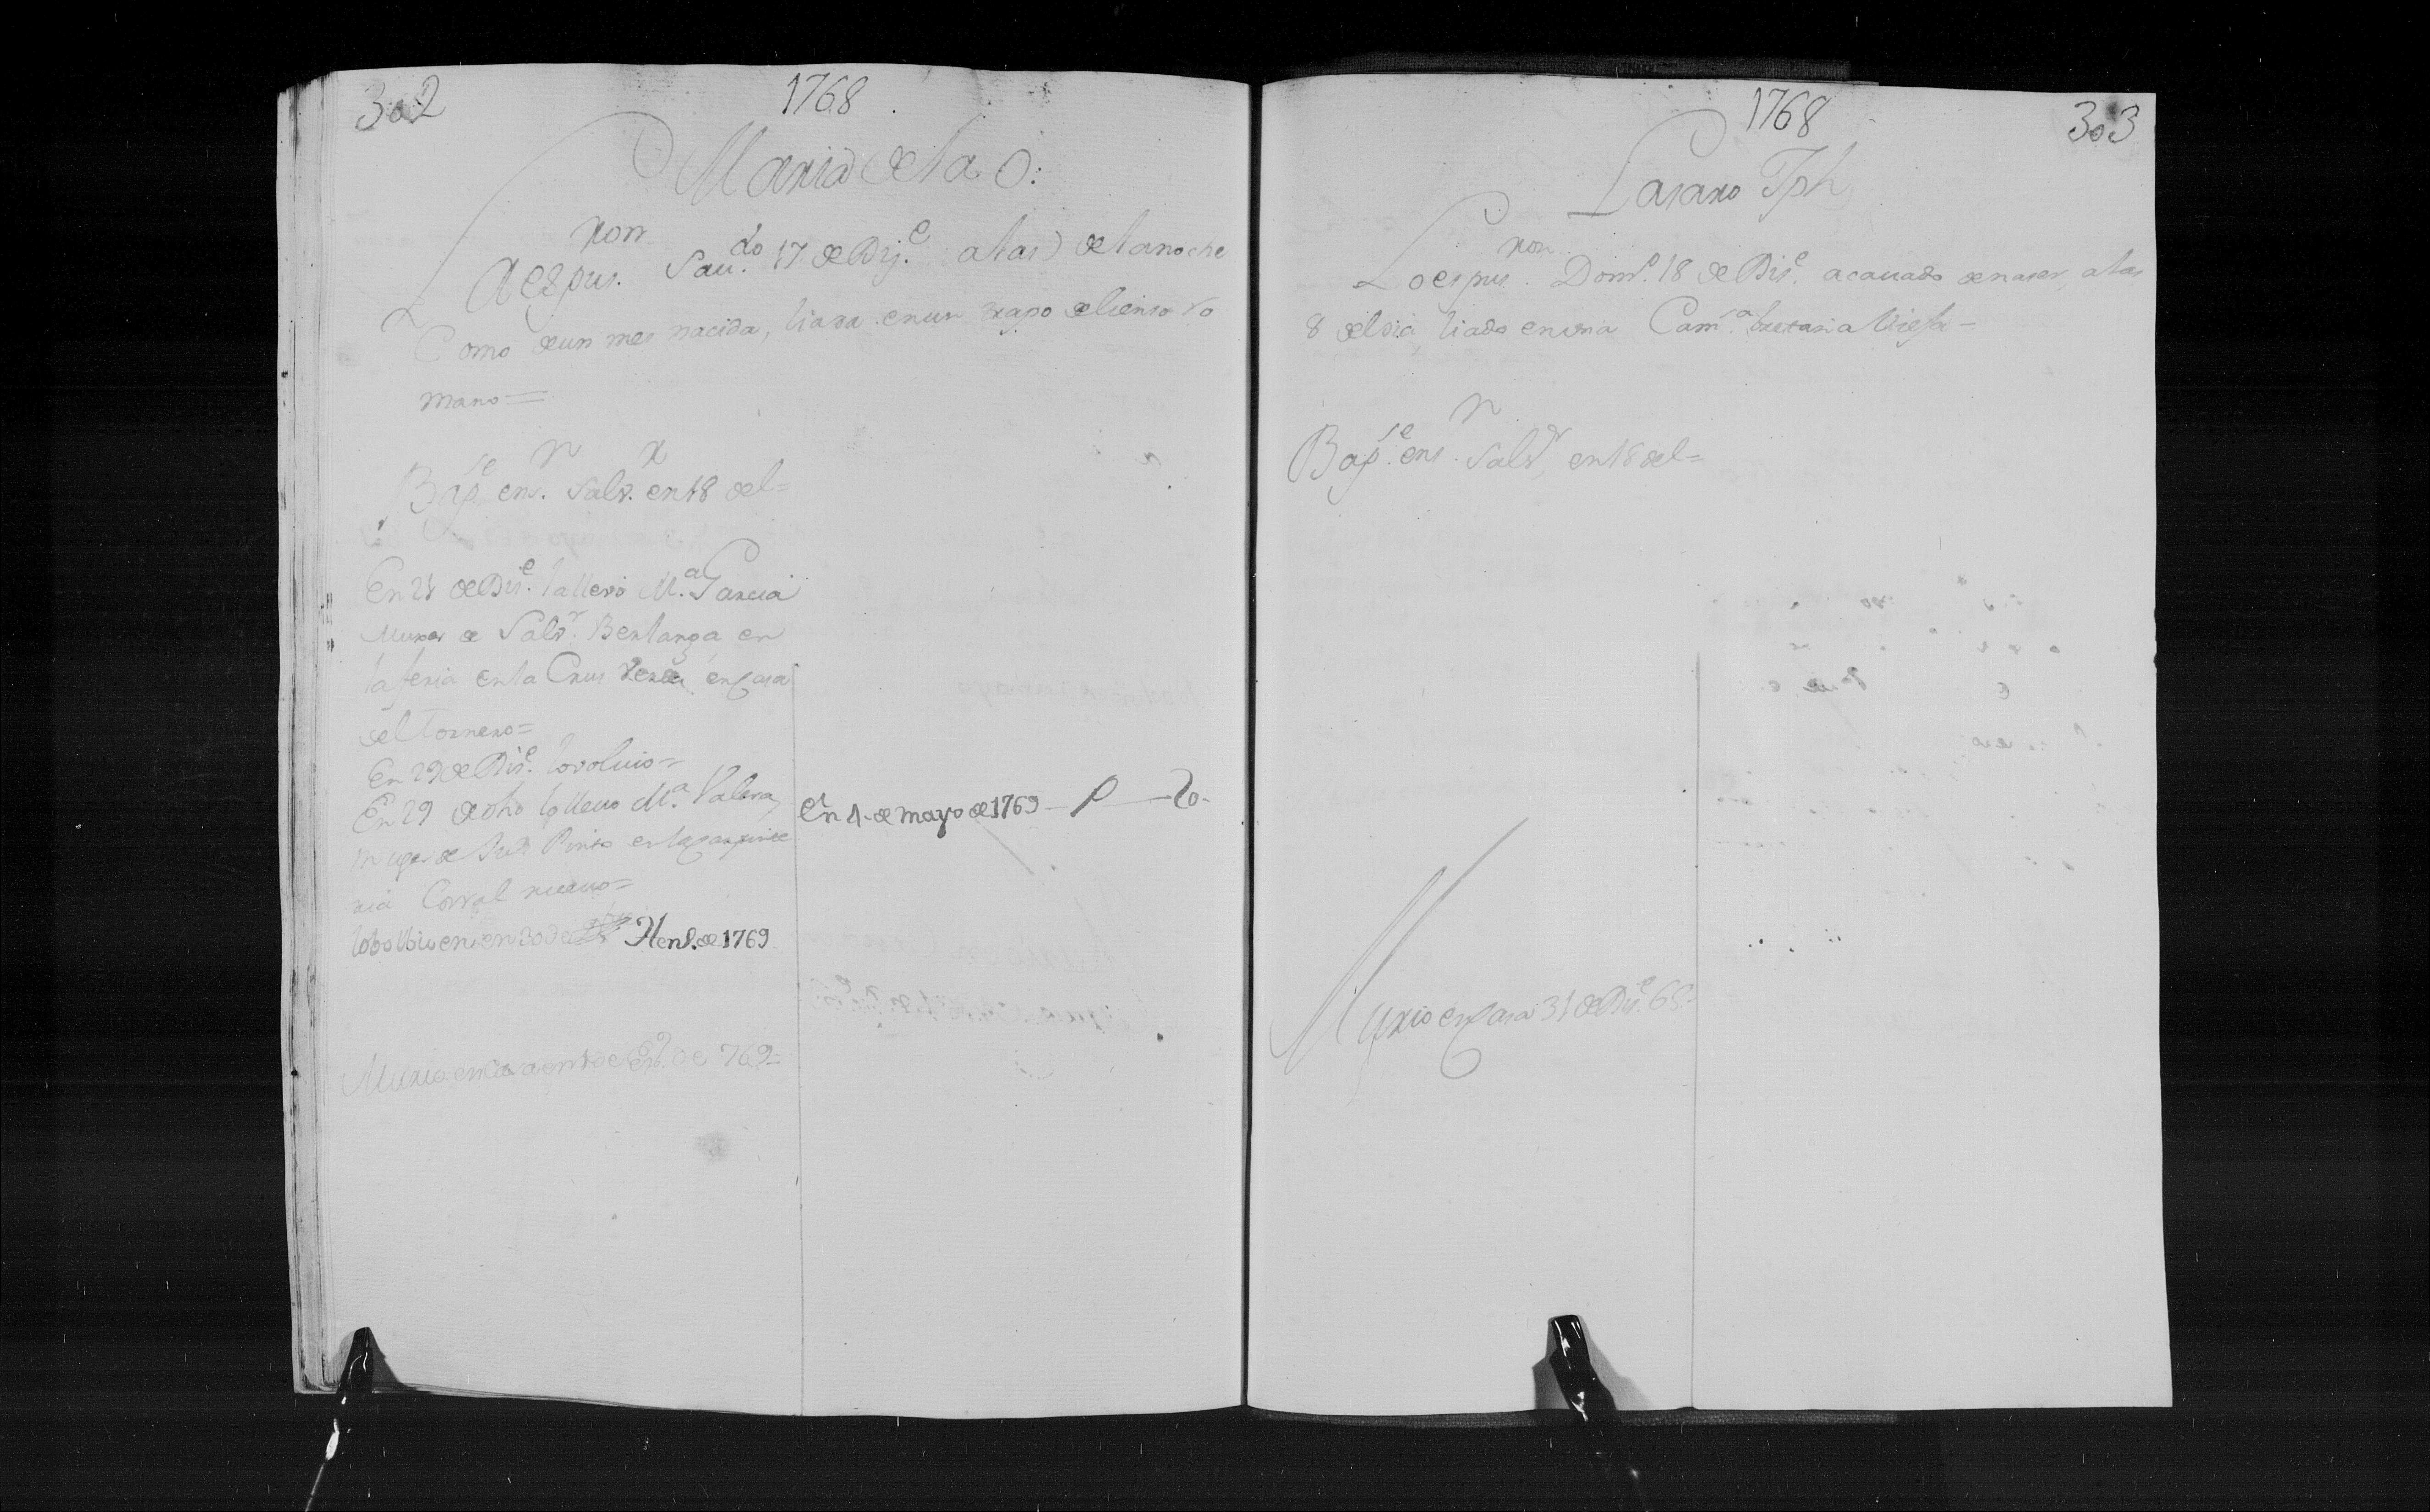 302
1768
Maria de la O:
La espus.ron Sau.do 17 de Dis.e a las de la noche
Como de un mes nacida, liada en un trapo de lienso Ro
mano=
Bap.se en S.n Salv.r en 18 del=
En 21 de Dis.e la llevó M.a Garcia
Muxer de Salv.r Berlanga en
la feria en la Crus Verde en casa
del Tornero=
En 29 de Dis.e lo volvio=
En 29 de dho lo llevo M.a Valera
muger de Pinto en la carpinte
ria Corral nuevo=
lo bolbio en 30 de Hen.o de 1769
Murio en Casa en de En.o de 769=
En 1 de mayo de 1769 — P — 20-
1768
303
Lasaro Jph
Lo espus.ron Dom.o 18 de Dis.e acavado de naser, a las
8 del dia, liado en una Cam.a bretaña Viefa=
Bap.se en S.n Salv.r en 18 del=
Murio en Casa 31 de Dis.e 68=